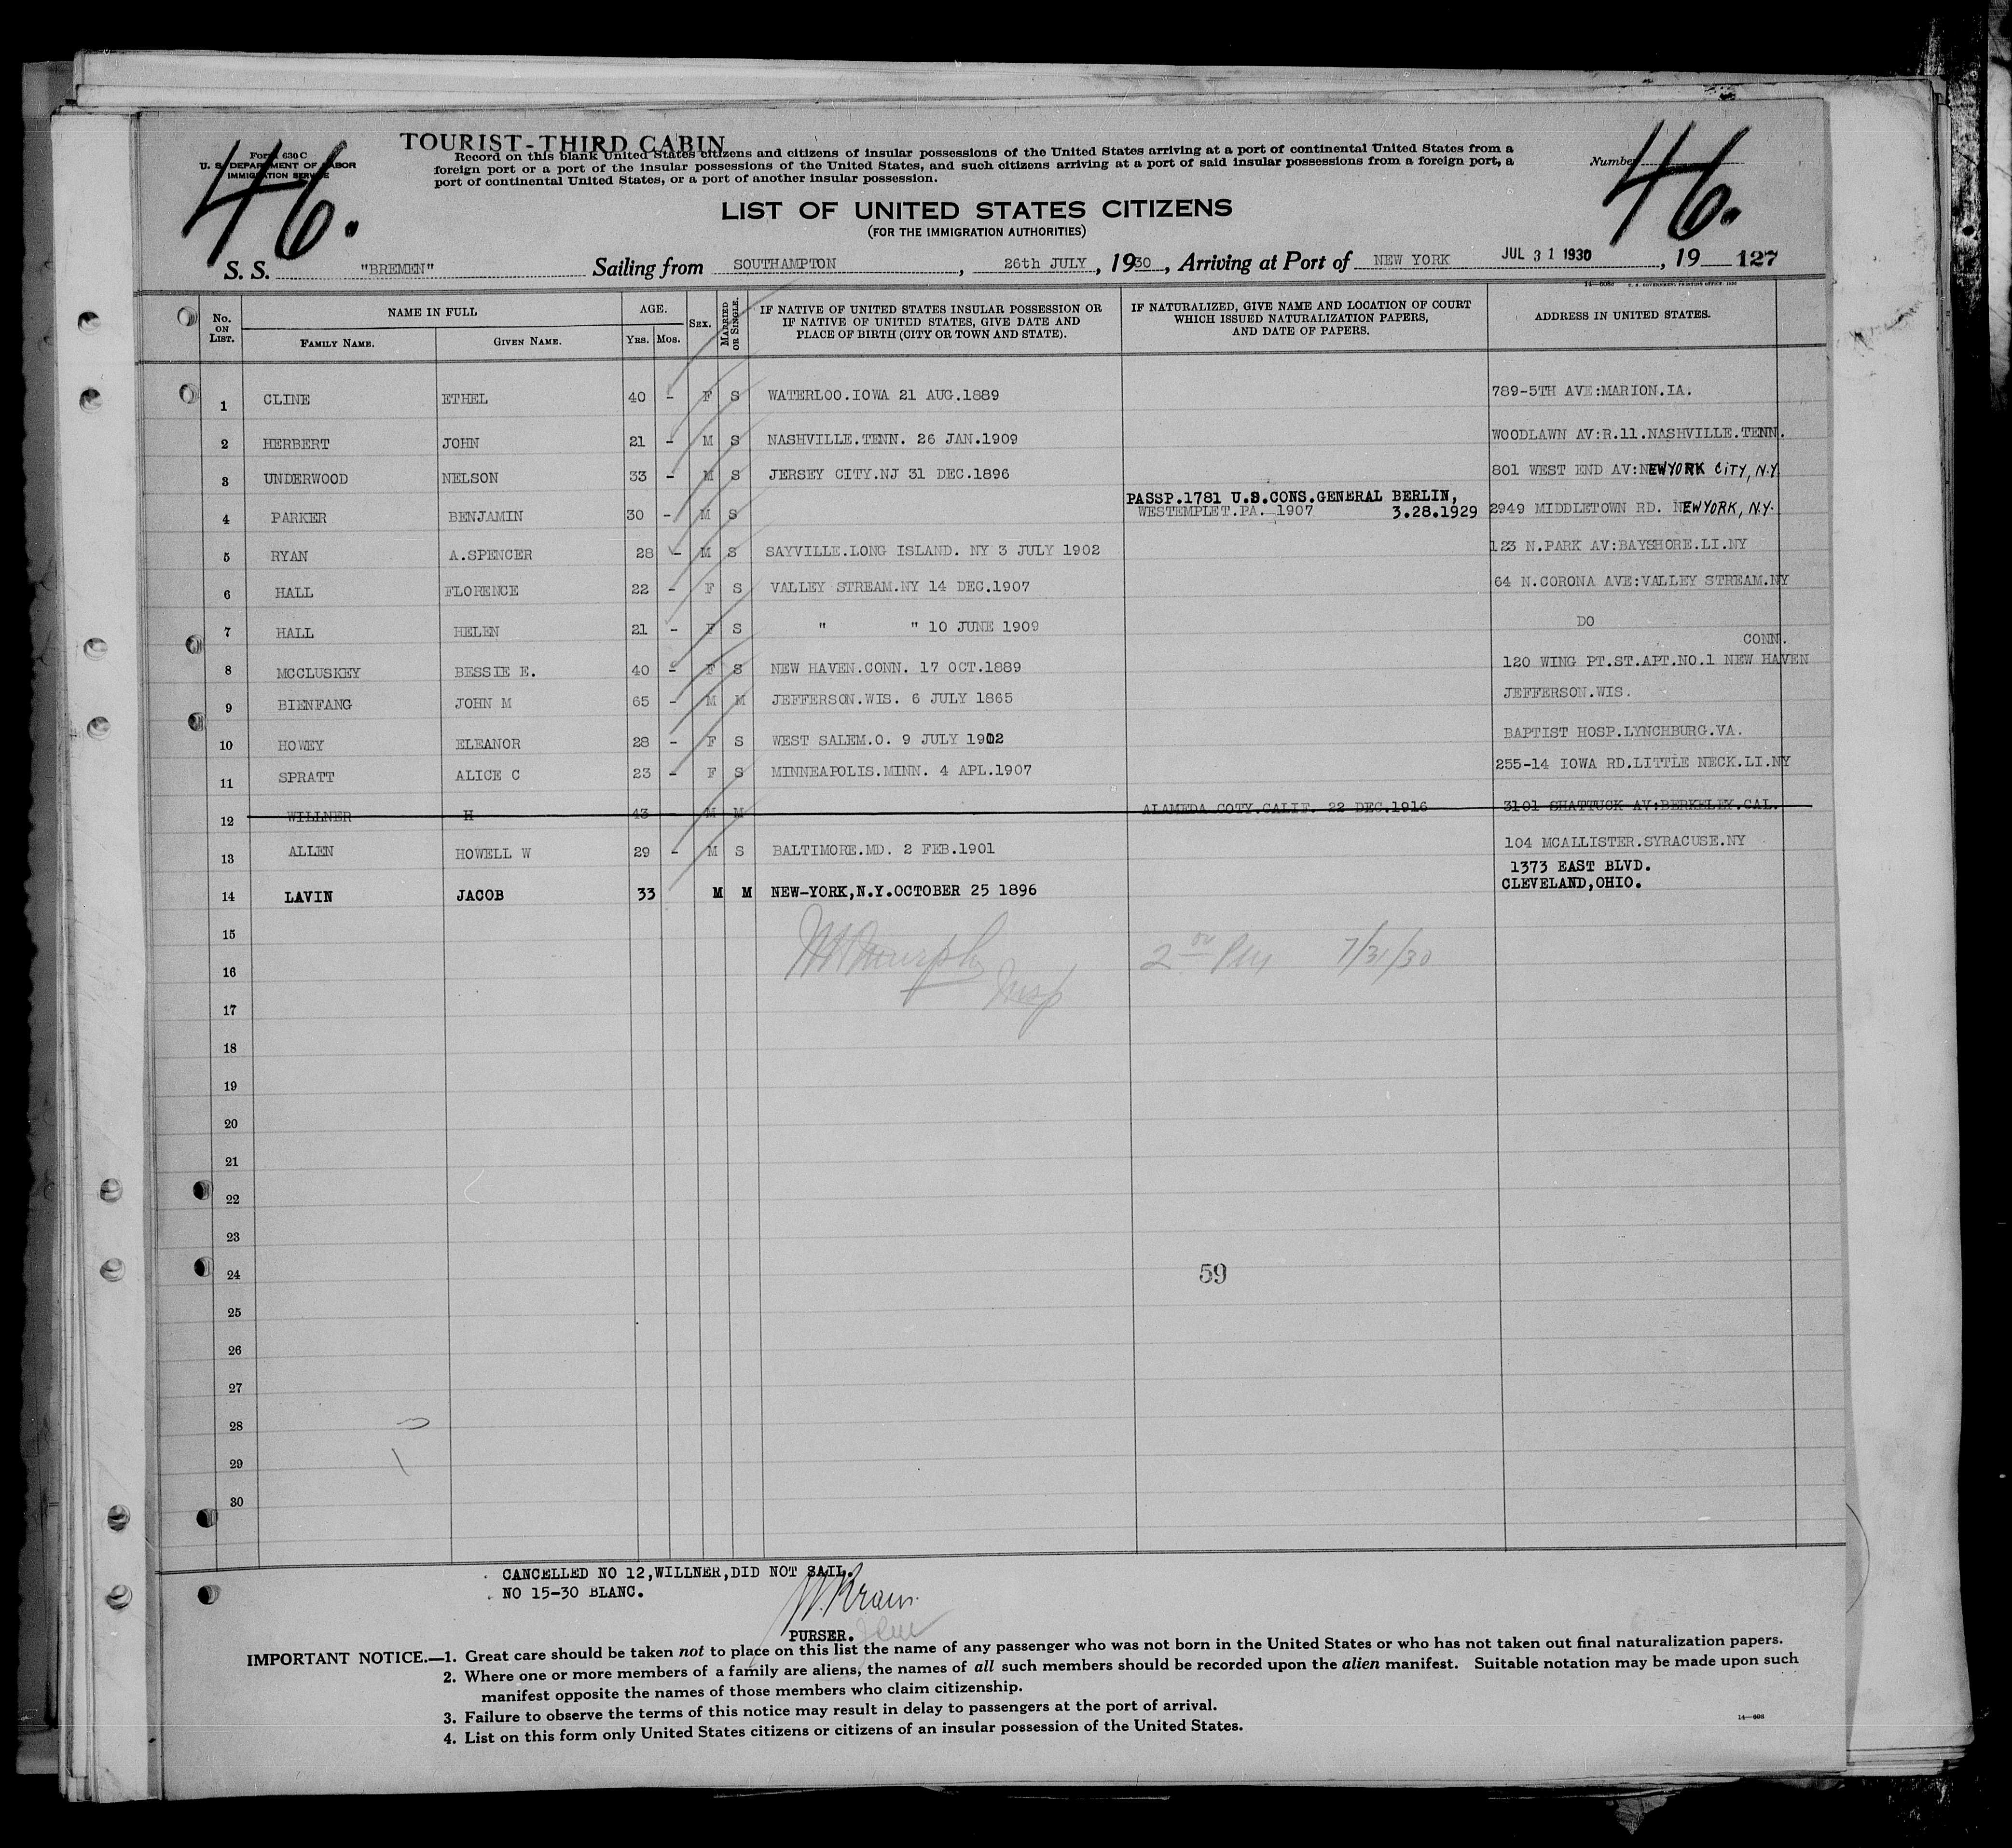 TOURIST-THIRD CABIN
46.
46.
Form 630 C
U. S. DEPARTMENT OF LABOR
IMMIGRATION SERVICE
Number
Record on this blank United States citizens and citizens of insular possessions of the United States arriving at a port of continental United States from a
foreign port or a port of the insular possessions of the United States, and such citizens arriving at a port of said insular possessions from a foreign port, a
port of continental United States, or a port of another insular possession.
LIST OF UNITED STATES CITIZENS
(FOR THE IMMIGRATION AUTHORITIES)
S. S. "BREMEN" Sailing from SOUTHAMPTON, 26th JULY, 1930, Arriving at Port of NEW YORK JUL 31 1930, 19 127
No. ON LIST. NAME IN FULL AGE. SEX. MARRIED OR SINGLE. IF NATIVE OF UNITED STATES INSULAR POSSESSION OR IF NATIVE OF UNITED STATES, GIVE DATE AND PLACE OF BIRTH (CITY OR TOWN AND STATE). IF NATURALIZED, GIVE NAME AND LOCATION OF COURT WHICH ISSUED NATURALIZATION PAPERS, AND DATE OF PAPERS. ADDRESS IN UNITED STATES.
FAMILY NAME. GIVEN NAME. YRS. MOS.
1 CLINE ETHEL 40 - F S WATERLOO.IOWA 21 AUG.1889 789-5TH AVE:MARION.IA.
2 HERBERT JOHN 21 - M S NASHVILLE.TENN. 26 JAN.1909 WOODLAWN AV:R.11.NASHVILLE.TENN.
3 UNDERWOOD NELSON 33 - M S JERSEY CITY.NJ 31 DEC.1896 801 WEST END AV:NEWYORK CITY, N.Y.
PASSP.1781 U.S.CONS.GENERAL BERLIN,
4 PARKER BENJAMIN 30 - M S WESTEMPLET.PA. 1907 3.28.1929 2949 MIDDLETOWN RD. NEWYORK, N.Y.
5 RYAN A.SPENCER 28 - M S SAYVILLE.LONG ISLAND. NY 3 JULY 1902 123 N.PARK AV:BAYSHORE.LI.NY
6 HALL FLORENCE 22 - F S VALLEY STREAM.NY 14 DEC.1907 64 N.CORONA AVE:VALLEY STREAM.NY
7 HALL HELEN 21 - F S " " 10 JUNE 1909 DO
CONN.
8 MCCLUSKEY BESSIE E. 40 - F S NEW HAVEN.CONN. 17 OCT.1889 120 WING PT.ST.APT.NO.1 NEW HAVEN
9 BIENFANG JOHN M 65 - M M JEFFERSON.WIS. 6 JULY 1865 JEFFERSON.WIS.
10 HOWEY ELEANOR 28 - F S WEST SALEM.O. 9 JULY 1902 BAPTIST HOSP.LYNCHBURG.VA.
11 SPRATT ALICE C 23 - F S MINNEAPOLIS.MINN. 4 APL.1907 255-14 IOWA RD.LITTLE NECK.LI.NY
12 WILLNER H 43 - M M ALAMEDA COTY.CALIF. 22 DEC.1916 3101 SHATTUCK AV:BERKELEY.CAL.
13 ALLEN HOWELL W 29 - M S BALTIMORE.MD. 2 FEB.1901 104 MCALLISTER.SYRACUSE.NY
1373 EAST BLVD.
14 LAVIN JACOB 33 M M NEW-YORK,N.Y.OCTOBER 25 1896 CLEVELAND,OHIO.
15
16 Murphy Insp 7/31/30
17
18
19
20
21
22
23
24 59
25
26
27
28
29
30
CANCELLED NO 12,WILLNER,DID NOT SAIL.
NO 15-30 BLANC.
PURSER.
IMPORTANT NOTICE.—1. Great care should be taken not to place on this list the name of any passenger who was not born in the United States or who has not taken out final naturalization papers.
2. Where one or more members of a family are aliens, the names of all such members should be recorded upon the alien manifest. Suitable notation may be made upon such
manifest opposite the names of those members who claim citizenship.
3. Failure to observe the terms of this notice may result in delay to passengers at the port of arrival.
4. List on this form only United States citizens or citizens of an insular possession of the United States.